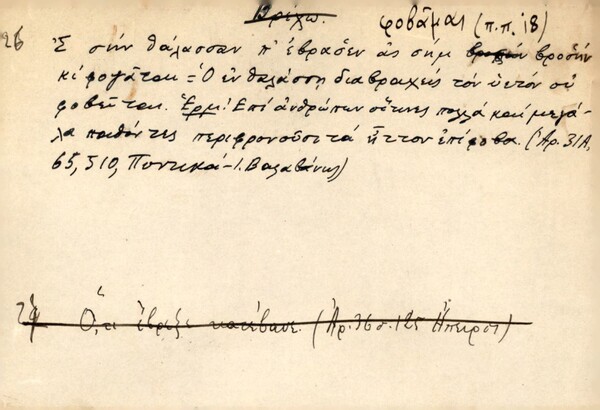 Βρέχω. φοβᾶμαι (π.π. 18)
26 Σ σὴν θάλασσαν π' ἐβράσεν ἀς σὴμ βροχὴν βροσὴν
κὶ φογᾶται = Ὁ ἐν θαλάσσῃ διαβραχεὶς τὸν ὑετὸν οὐ
φοβεῖται. Ἑρμ! Ἐπὶ ἀνθρώπων οἵτινες πολλὰ καὶ μεγά-
λα παθόντες περιφρονοῦσι τὰ ἧττον ἐπίφοβα. (Ἀρ. 31Α,
65, 510, Ποντικά - Ι. Βαλαβάνης)
Ὅ,τι ἔβρεξε κατέβασε. (Ἀρ. 36 σ. 125 Ἤπειρος)